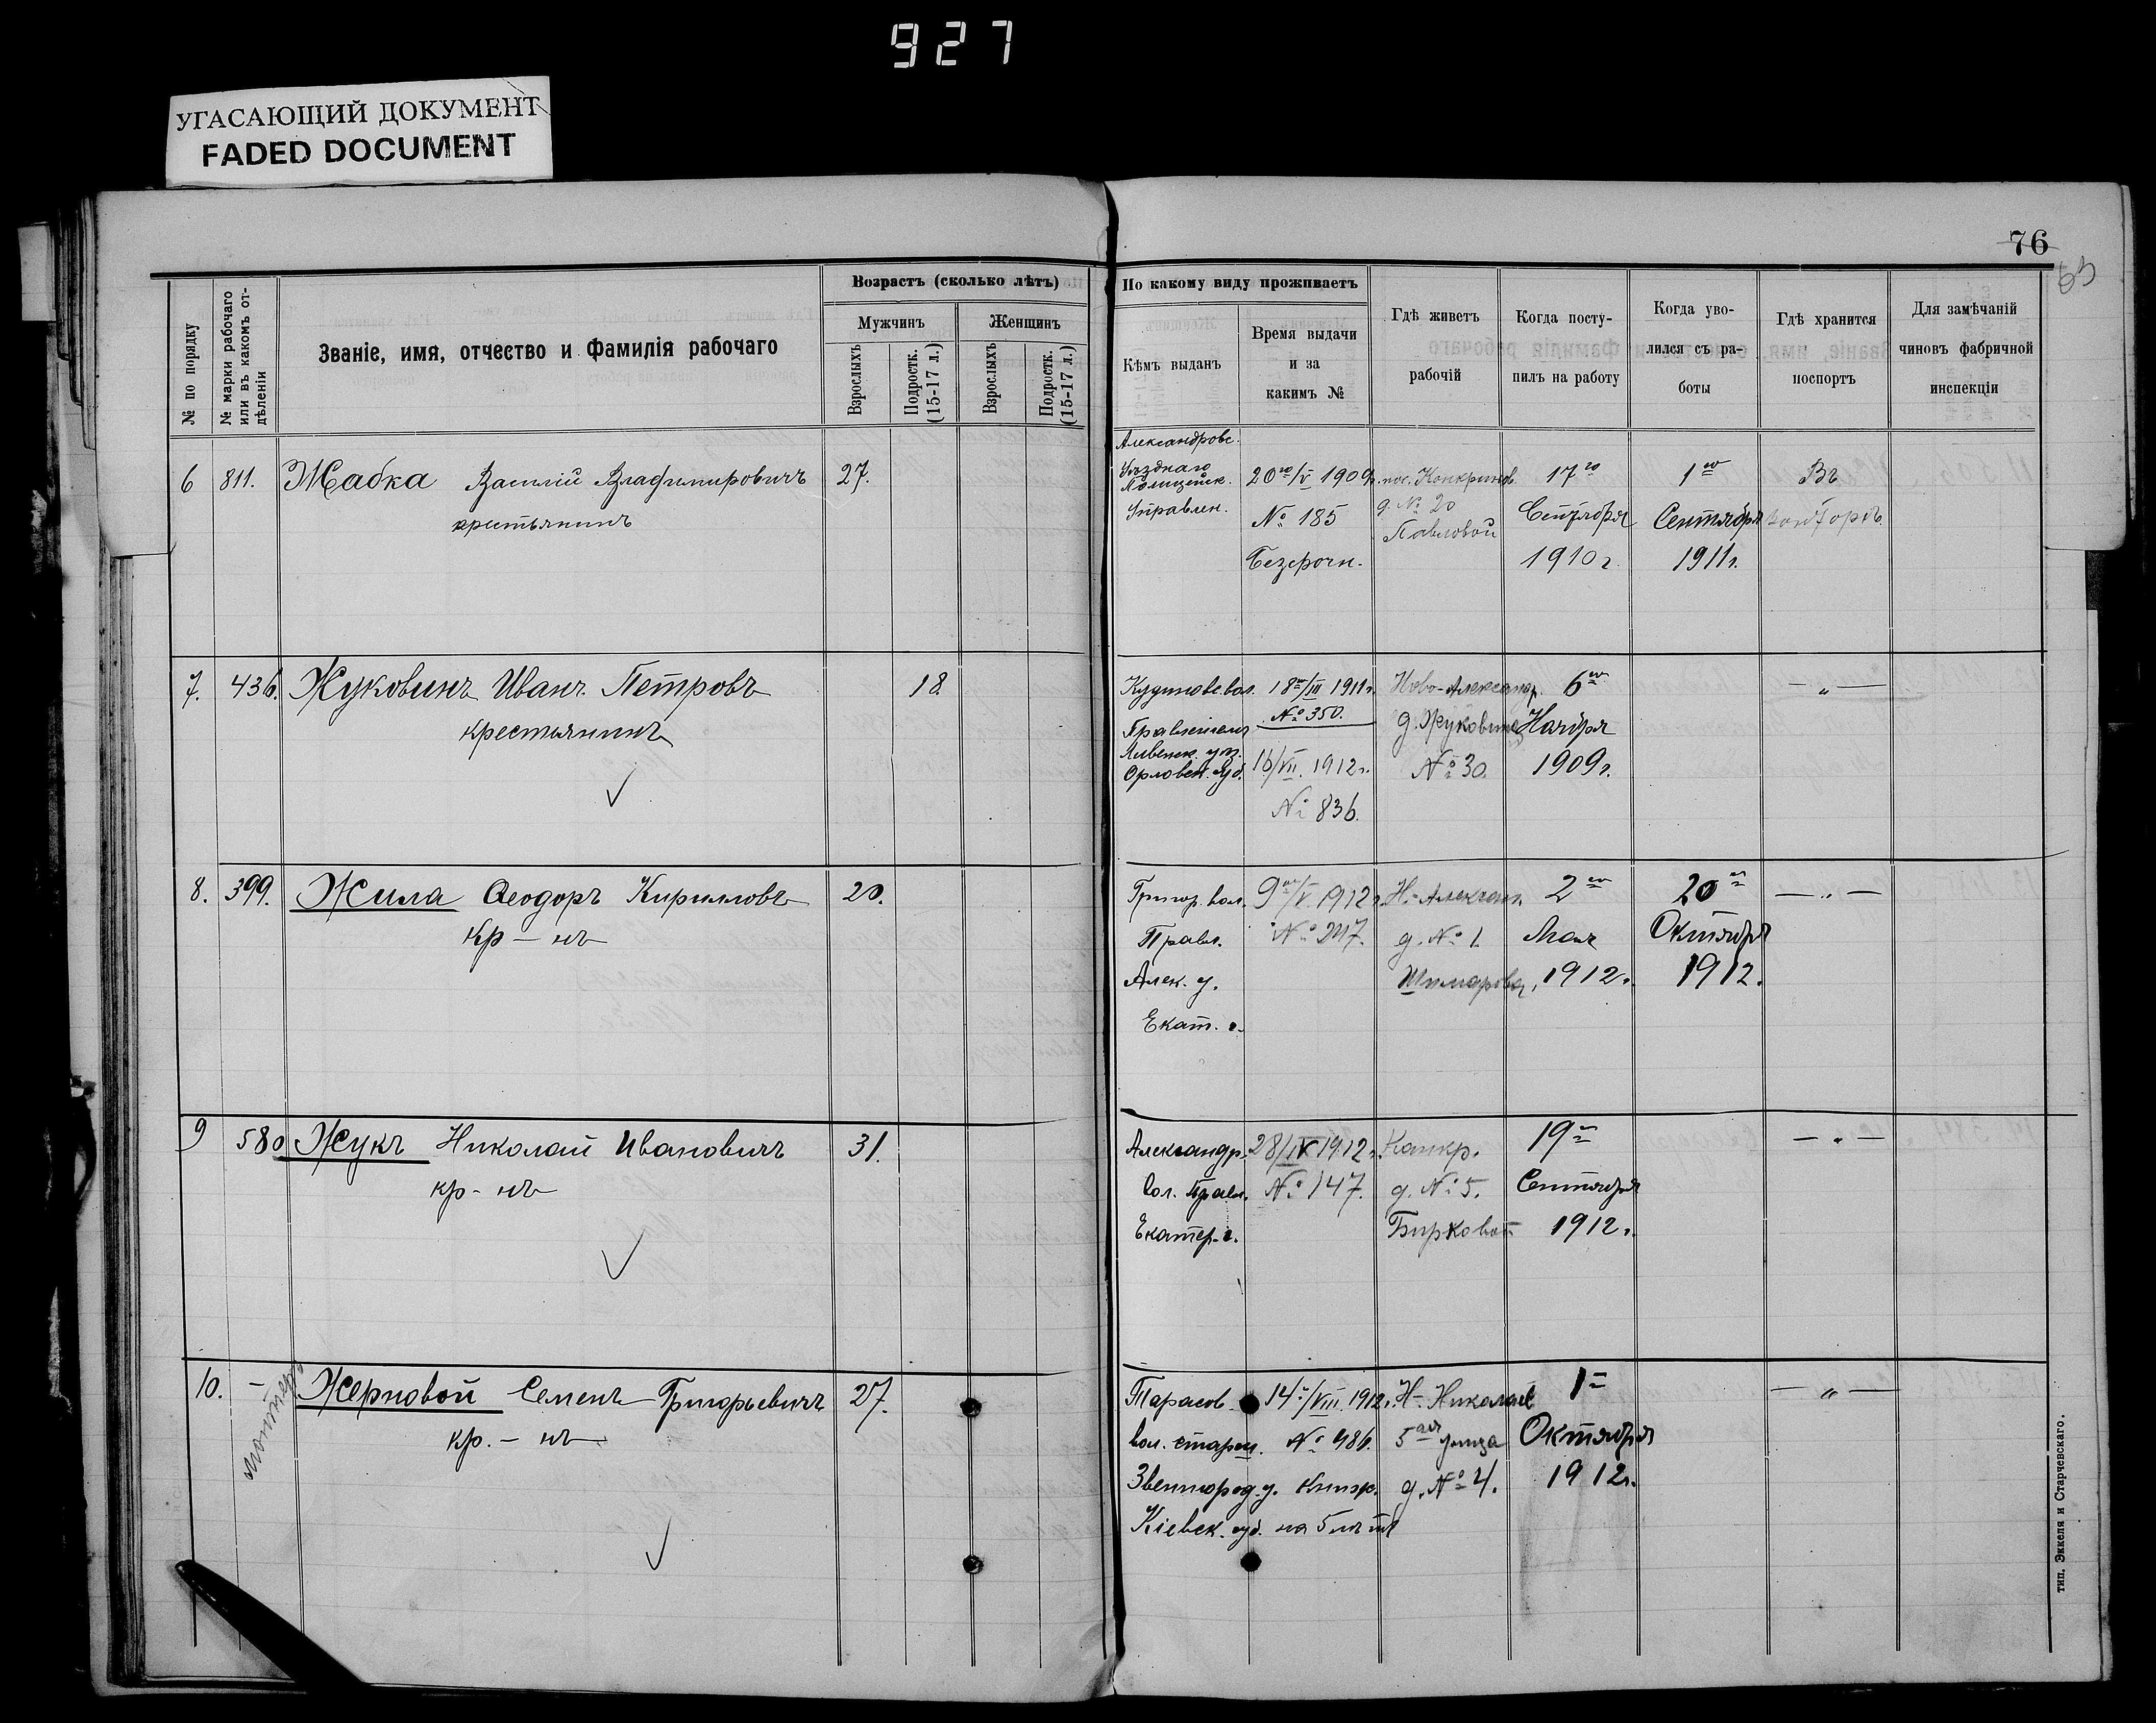 927
УГАСАЮЩИЙ ДОКУМЕНТ
FADED DOCUMENT
76
63
№ по порядку
№ марки рабочаго
или въ какомъ от-
дѣленіи
Званіе, имя, отчество и фамилія рабочаго
Возрастъ (сколько лѣтъ)
Мужчинъ
Женщинъ
Взрослыхъ
Подростк.
(15-17 л.)
Взрослыхъ
Подростк.
(15-17 л.)
По какому виду проживаетъ
Кѣмъ выданъ
Время выдачи
и за
какимъ №
Гдѣ живетъ
рабочій
Когда посту-
пилъ на работу
Когда уво-
лился съ ра-
боты
Гдѣ хранится
поспортъ
Для замѣчаній
чиновъ фабричной
инспекціи
6 811. Жабка Василій Владимировичъ 27.
крестьянинъ
Александровс.
Уѣзднаго
Полицейск.
Управлен.
20го/V 1909г.
№ 185
Безсрочн.
пос. Конкринов.
д. № 20
Павловой
17го
Сентября
1910 г.
1го
Сентября
1911 г.
Въ
конторѣ.
7. 436. Жуковинъ Иванъ Петровъ 18.
крестьянинъ
Кудиновс. вол.
Правленіемъ
Ливенск. уѣз.
Орловск. губ.
18го/III 1911 г.
№ 350.
16/VII. 1912 г.
№ 836.
Ново-Александр.
д. Жуковина
№ 30.
6го
Ноября
1909 г.
— „ —
8. 399. Жила Ѳеодоръ Кирилловъ 20.
кр-нъ
Григор. вол.
Правл.
Алек. у.
Екат. г.
9го/V 1912 г.
№ 247.
Н.-Алексан.
д. № 1.
2го
Мая
1912 г.
20го
Октября
1912.
— „ —
9 580 Жукъ Николай Ивановичъ 31.
кр-нъ
Александр.
Вол. Правл.
Екатер. г.
28/IV 1912 г.
№ 147.
Канкр.
д. № 5.
Бирковой
19го
Сентября
1912 г.
— „ —
10. — Жерновой Семенъ Григорьевичъ 27.
кр.-нъ
Тарасов.
вол. старш.
Звенигород. у.
Кіевск. губ.
14го/VIII. 1912 г.
№ 486.
на 5 лѣтъ
Н-Николаев
5ая улица
д. № 4.
1го
Октября
1912 г.
— „ —
тип. Эккеля и Старчевскаго.